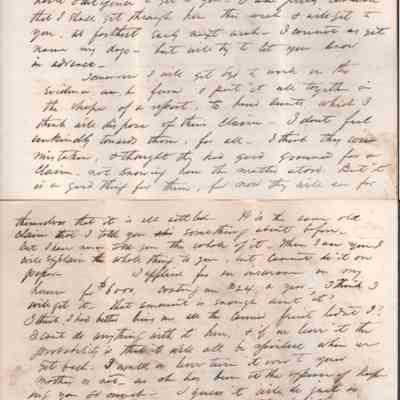 that I shall get through here this week & will get to
you, at farthest early next week — I cannot as yet
name my days — but will try to let you know
in advance —
Tomorrow I will get to work on the
evidence & put it all together in
the shape of a report, to, which I
think will dispose of their claim — I don't feel
unkindly towards them, for all — I think they were
mistaken, & thought they had good grounds for a
claim, not knowing how the matter stood. But it
is a good thing for them, for now they will see for
themselves that it is all settled. It is the same old
claim that I told you something about before,
but I have never told you the whole of it — When I see you I
will explain the whole thing to you, but cannot do it on
paper. I applied for an insurance on my
house for $6000, costing me $24 a year, I think I
will get it. That amount is enough ain't it?
I think I had better bring on all the fruit hadn't I?
I can't do anything with it here, & if we leave it the
probability is that it will all be spoiled when we
get back. I would as leave turn it over to your
mother as not, as she has been at the expense of keep
ing you so much — I guess it will be just as